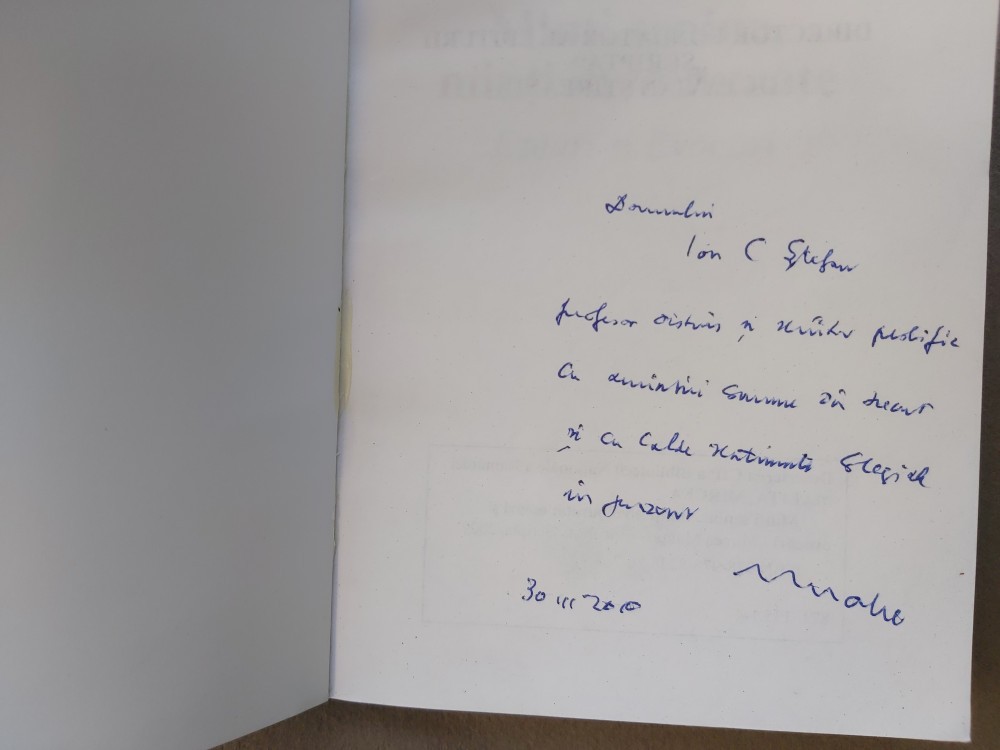 Domnului
Ion C Ștefan
profesor distins și scriitor prolific
cu amintiri comune din trecut
și cu calde sentimente colegiale
în prezent
30 III 2010